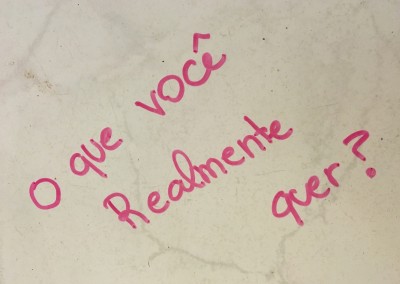 O que você
Realmente
quer?